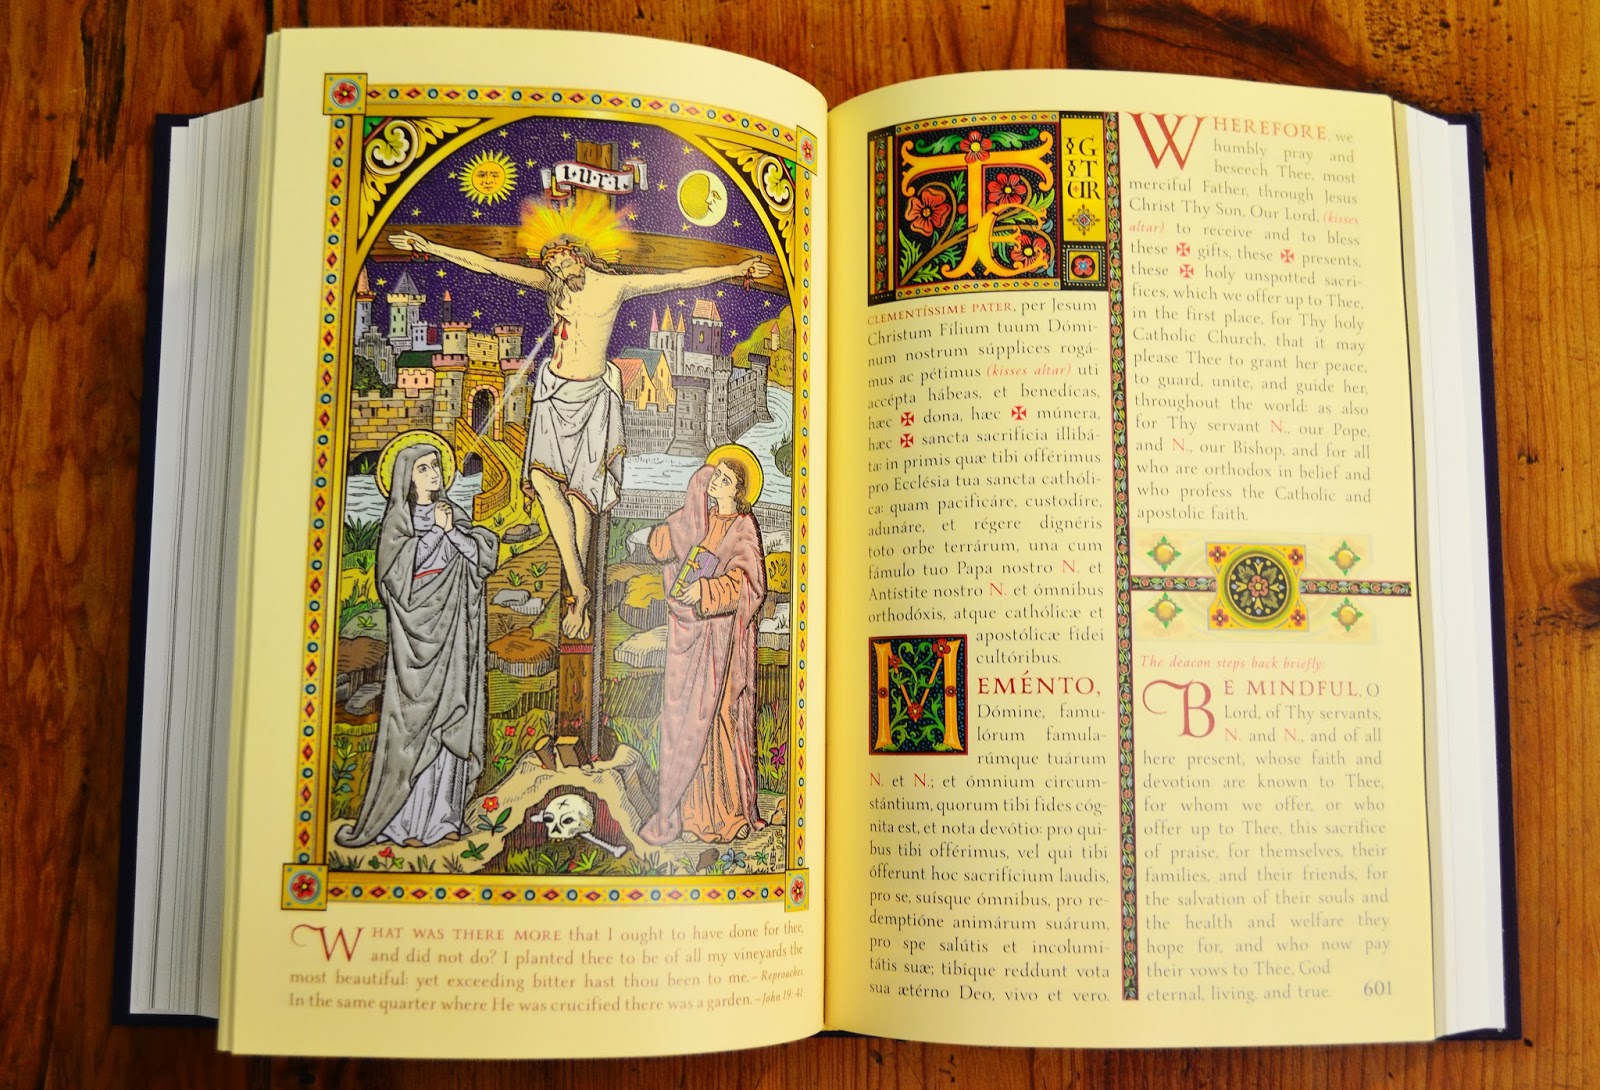 I·N·R·I·
WHAT WAS THERE MORE that I ought to have done for thee,
and did not do? I planted thee to be of all my vineyards the
most beautiful: yet exceeding bitter hast thou been to me.–Reproaches
In the same quarter where He was crucified there was a garden.–John 19: 41
TE IGITUR
CLEMENTÍSSIME PATER, per Jesum
Christum Fílium tuum Dómi-
num nostrum súpplices rogá-
mus ac pétimus (kisses altar) uti
accépta hábeas, et benedícas,
hæc ✠ dona, hæc ✠ múnera,
hæc ✠ sancta sacrifícia illibá-
ta: in primis quæ tibi offérimus
pro Ecclésia tua sancta cathóli-
ca: quam pacificáre, custodíre,
adunáre, et régere dignéris
toto orbe terrárum, una cum
fámulo tuo Papa nostro N. et
Antístite nostro N. et ómnibus
orthodóxis, atque cathólicæ et
apostólicæ fídei
cultóribus.
MEMÉNTO,
Dómine, famu-
lórum famula-
rúmque tuárum
N. et N.; et ómnium circum-
stántium, quorum tibi fides cóg-
nita est, et nota devótio: pro qui-
bus tibi offérimus, vel qui tibi
ófferunt hoc sacrifícium laudis,
pro se, suísque ómnibus, pro re-
demptióne animárum suárum,
pro spe salútis et incolumi-
tátis suæ; tibíque reddunt vota
sua ætérno Deo, vivo et vero.
WHEREFORE, we
humbly pray and
beseech Thee, most
merciful Father, through Jesus
Christ Thy Son, Our Lord, (kisses
altar) to receive and to bless
these ✠ gifts, these ✠ presents,
these ✠ holy unspotted sacri-
fices, which we offer up to Thee,
in the first place, for Thy holy
Catholic Church, that it may
please Thee to grant her peace,
to guard, unite, and guide her,
throughout the world: as also
for Thy servant N., our Pope,
and N., our Bishop, and for all
who are orthodox in belief and
who profess the Catholic and
apostolic faith.
The deacon steps back briefly:
BE MINDFUL, O
Lord, of Thy servants,
N. and N., and of all
here present, whose faith and
devotion are known to Thee,
for whom we offer, or who
offer up to Thee, this sacrifice
of praise, for themselves, their
families, and their friends, for
the salvation of their souls and
the health and welfare they
hope for, and who now pay
their vows to Thee, God
eternal, living, and true.
601